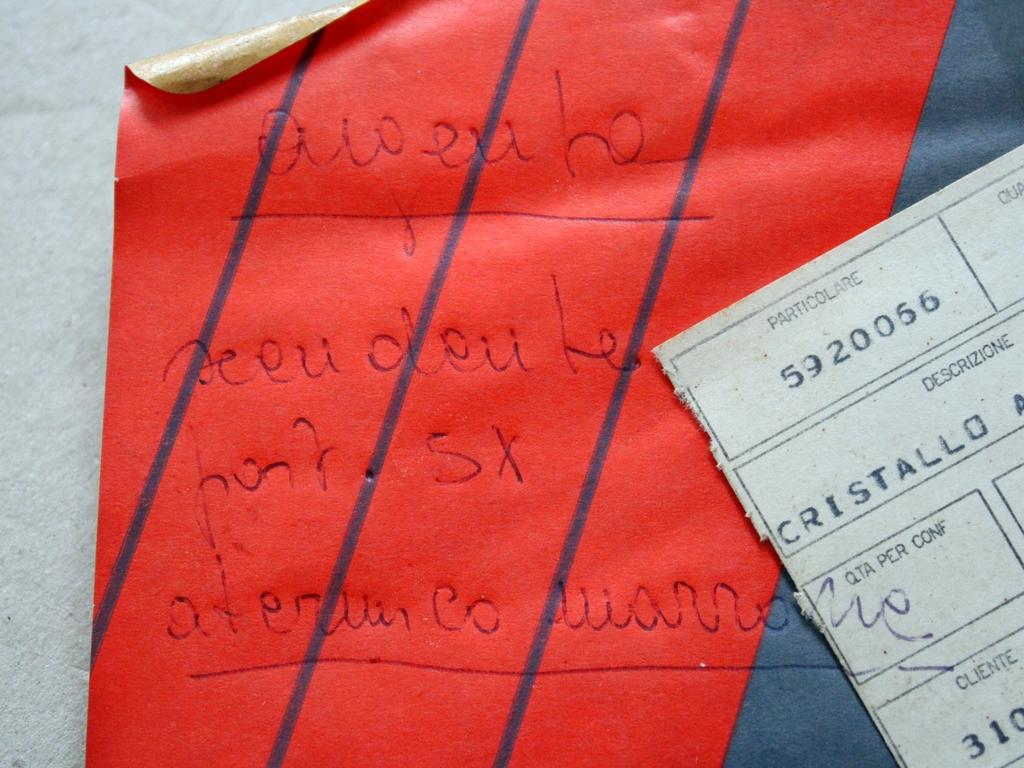 argenta
scendente
post. SX
atermico marrone
PARTICOLARE
5920066
DESCRIZIONE
CRISTALLO A
QTA PER CONF
CLIENTE
310